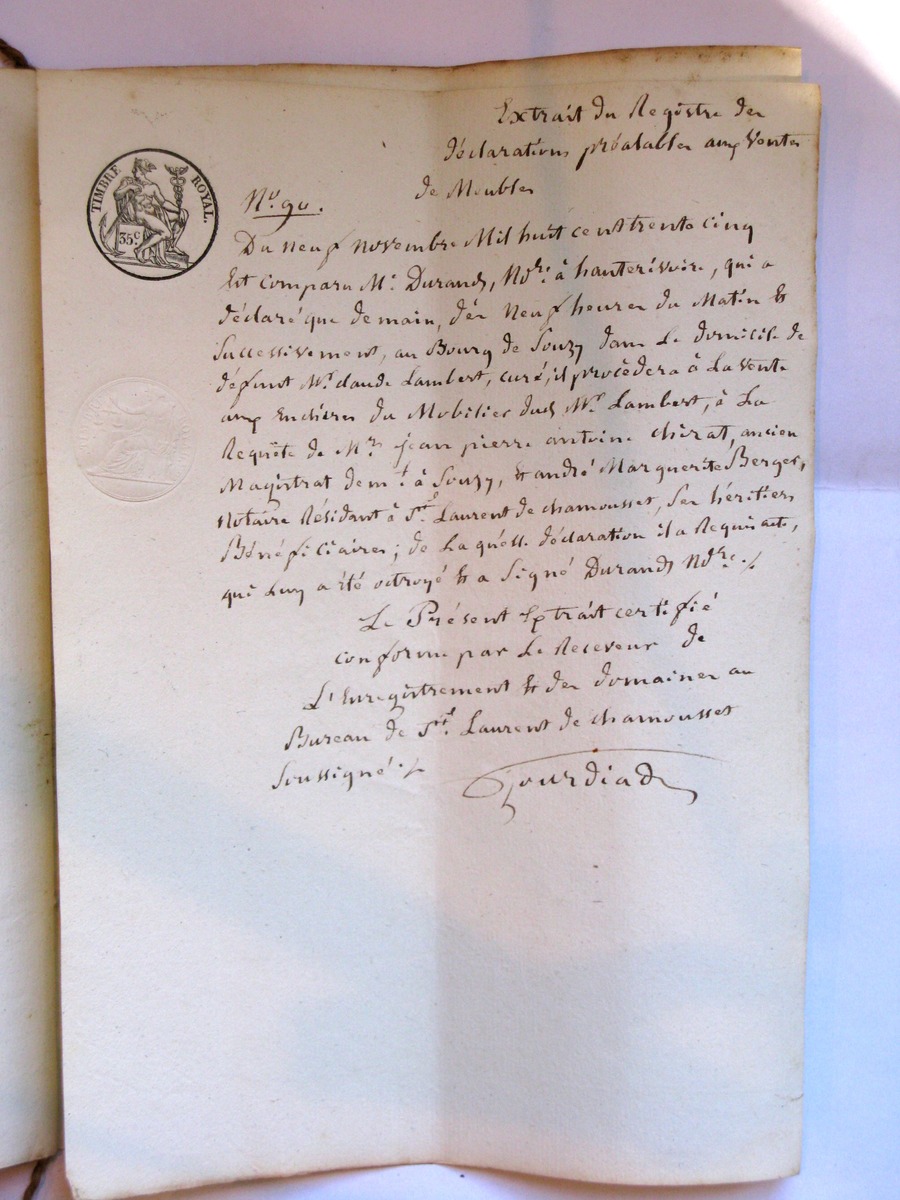 Extrait du Registre des
déclarations préalables aux Ventes
de Meubles
TIMBRE ROYAL.
35c
No. 90.
Du neuf novembre Mil huit cent trente cinq
Est comparu Mr. Durand, Nore. à hauterivoire, qui a
déclaré que demain, dès Neuf heures du Matin &
Successivement, au Bourg de Souzy dans Le domicile de
défunt Mr. claude Lambert, curé, il procèdera à La Vente
aux Enchères du Mobilier dud. Mr. Lambert, à La
Requête de Mrs. jean pierre antoine chirat, ancien
Magistrat demt. à Souzy, & andré Marguerite Berger,
Notaire Résidant à St. Laurent de chamousset, Ses héritiers
Bénéficiaires; de Laquelle déclaration il a Requis acte,
qui Luy a été octroyé & a Signé Durand Nore. ./.
Le Présent Extrait certifié
conforme par Le Receveur de
L'Enregistrement & des domaines au
Bureau de St. Laurent de chamousset
Soussigné ./.